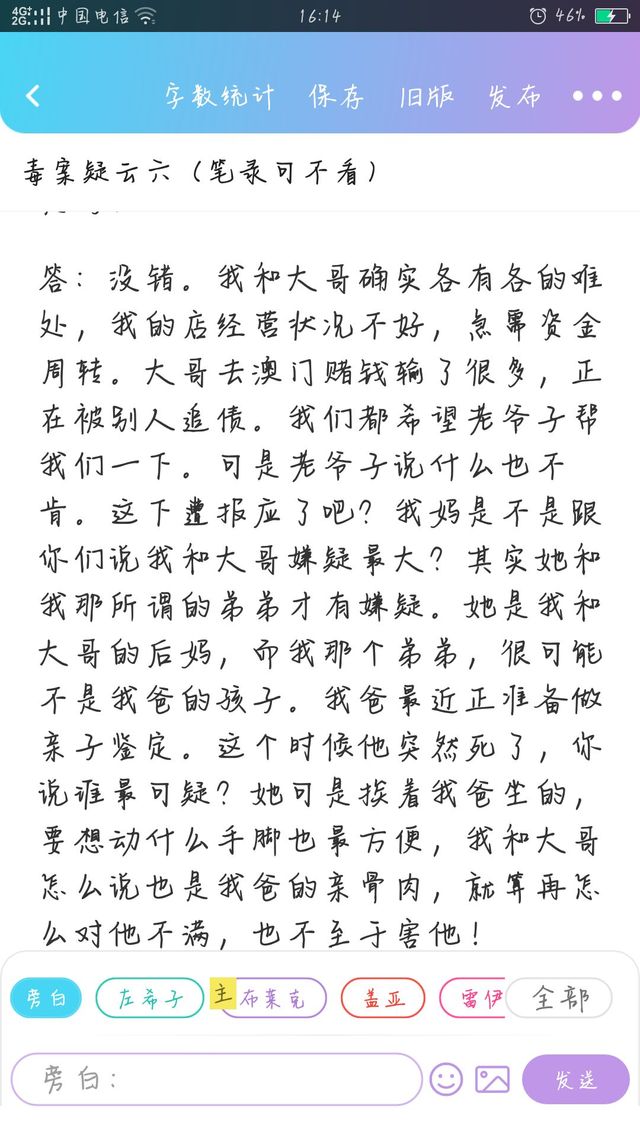 4G+ 2G 中国电信 16:14 46%
字数统计 保存 旧版 发布
毒案疑云六（笔录可不看）
答：没错。我和大哥确实各有各的难
处，我的店经营状况不好，急需资金
周转。大哥去澳门赌钱输了很多，正
在被别人追债。我们都希望老爷子帮
我们一下。可是老爷子说什么也不
肯。这下遭报应了吧？我妈是不是跟
你们说我和大哥嫌疑最大？其实她和
我那所谓的弟弟才有嫌疑。她是我和
大哥的后妈，而我那个弟弟，很可能
不是我爸的孩子。我爸最近正准备做
亲子鉴定。这个时候他突然死了，你
说谁最可疑？她可是挨着我爸坐的，
要想动什么手脚也最方便，我和大哥
怎么说也是我爸的亲骨肉，就算再怎
么对他不满，也不至于害他！
旁白 左希子 主 布莱克 盖亚 雷伊 全部
旁白： 发送